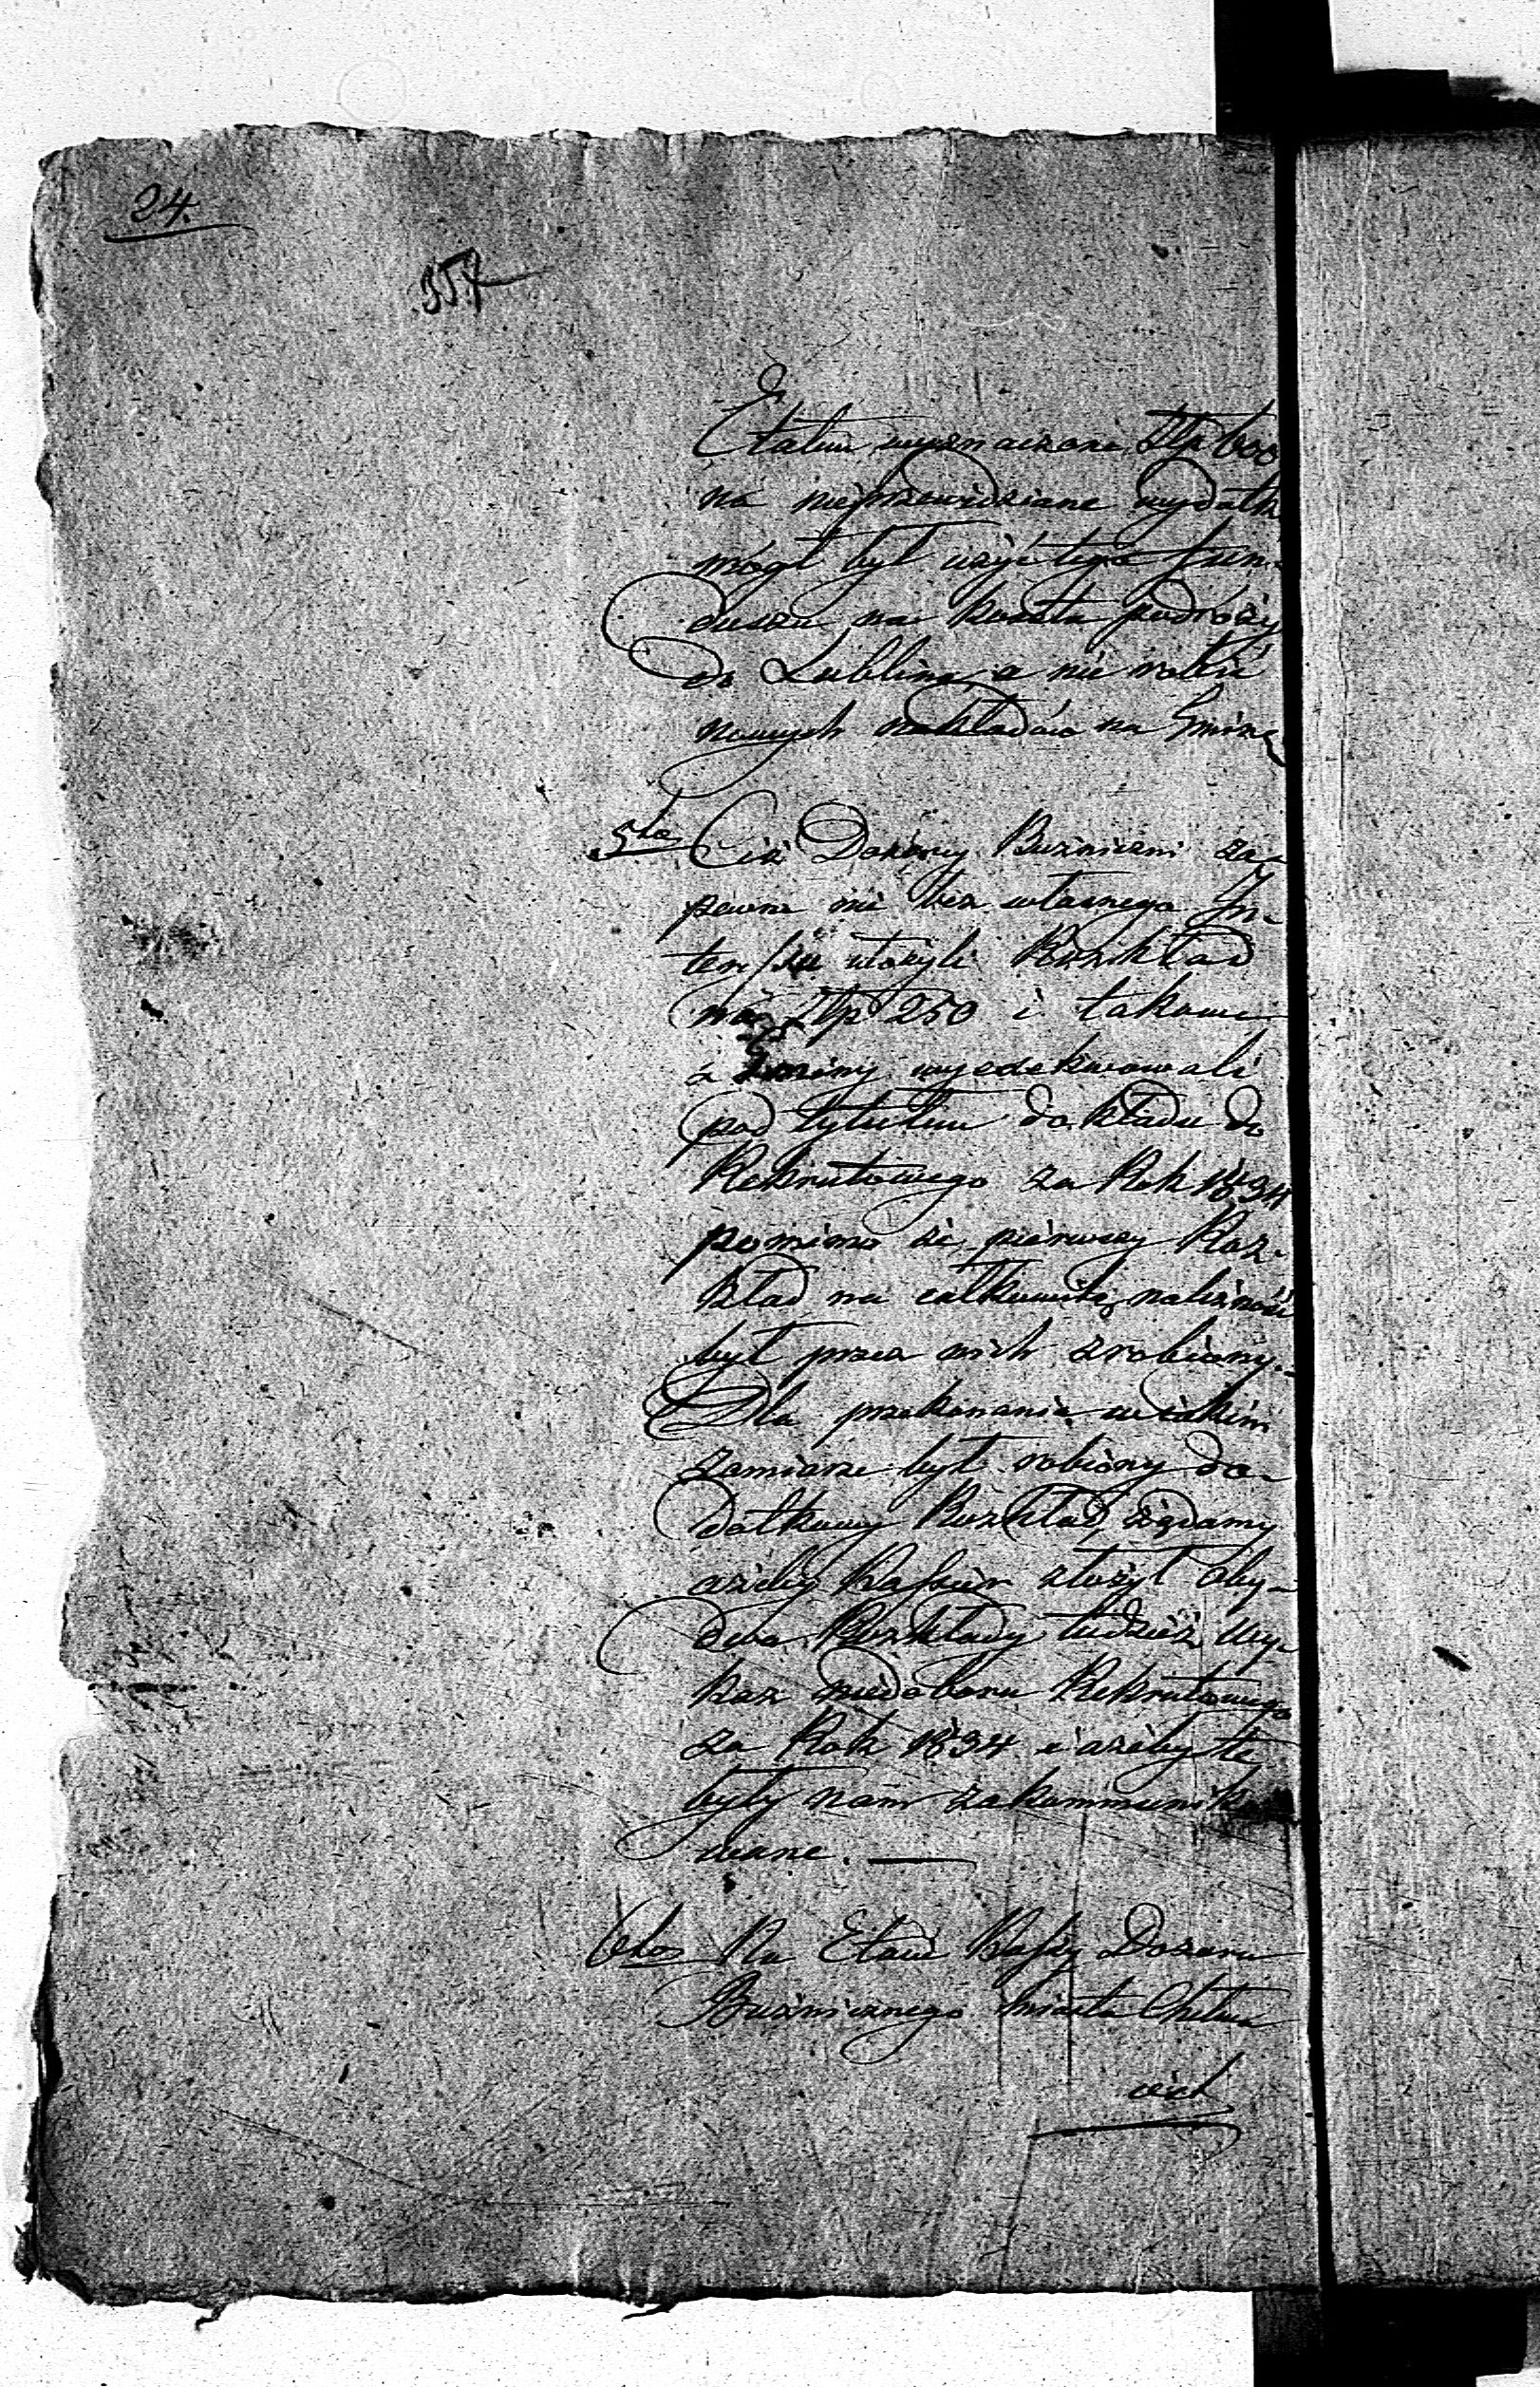 24.
357
Etatem wyznaczone Złp 600
na nieprzewidziane wydatk
mógł być użyć tego fun-
duszu na koszta podróży
do Lublina a nie robić
nowych nakładów na Gminę
5to Ciż Dozorcy Buźniczni za-
pewne nie bez własnego In-
teressu ułożyli Rozkład
na Złp 250 i takowe
z Gminy wyexekwowali
pod tytułem dokładu do
Rekrutowego za Rok 1834
pomimo że pierwszy Roz-
kład na całkowitą należność
był przez nich zrobiony.
Dla przekonania w jakim
zamiarze był robiony do-
datkowy Rozkład, żądamy
ażeby Kassier złożył oby-
dwa Rozkłady tudzież wy-
kaz niedoboru Rekrutowego
za Rok 1834 i ażeby te
były nam zakommuniko
wane. —
6to Na Etacie Kassy Dozoru
Buźnicznego Miasta Chełma